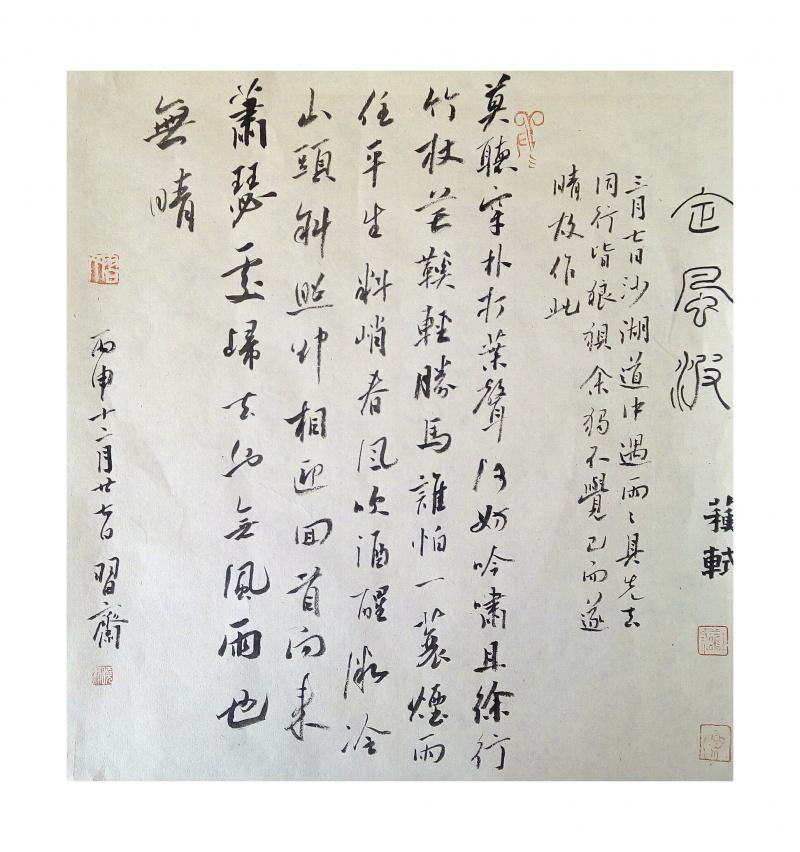 定風波
蘓軾
三月七日沙湖道中遇雨々具先去
同行皆狼狽余獨不覺已而遂
晴故作此
莫聽穿林打葉聲何妨吟嘯且徐行
竹杖芒鞵輕勝馬誰怕一蓑煙雨
任平生料峭春風吹酒醒微冷
山頭斜照却相迎回首向來
蕭瑟處歸去也無風雨也
無晴
丙申十二月廿七日習齋